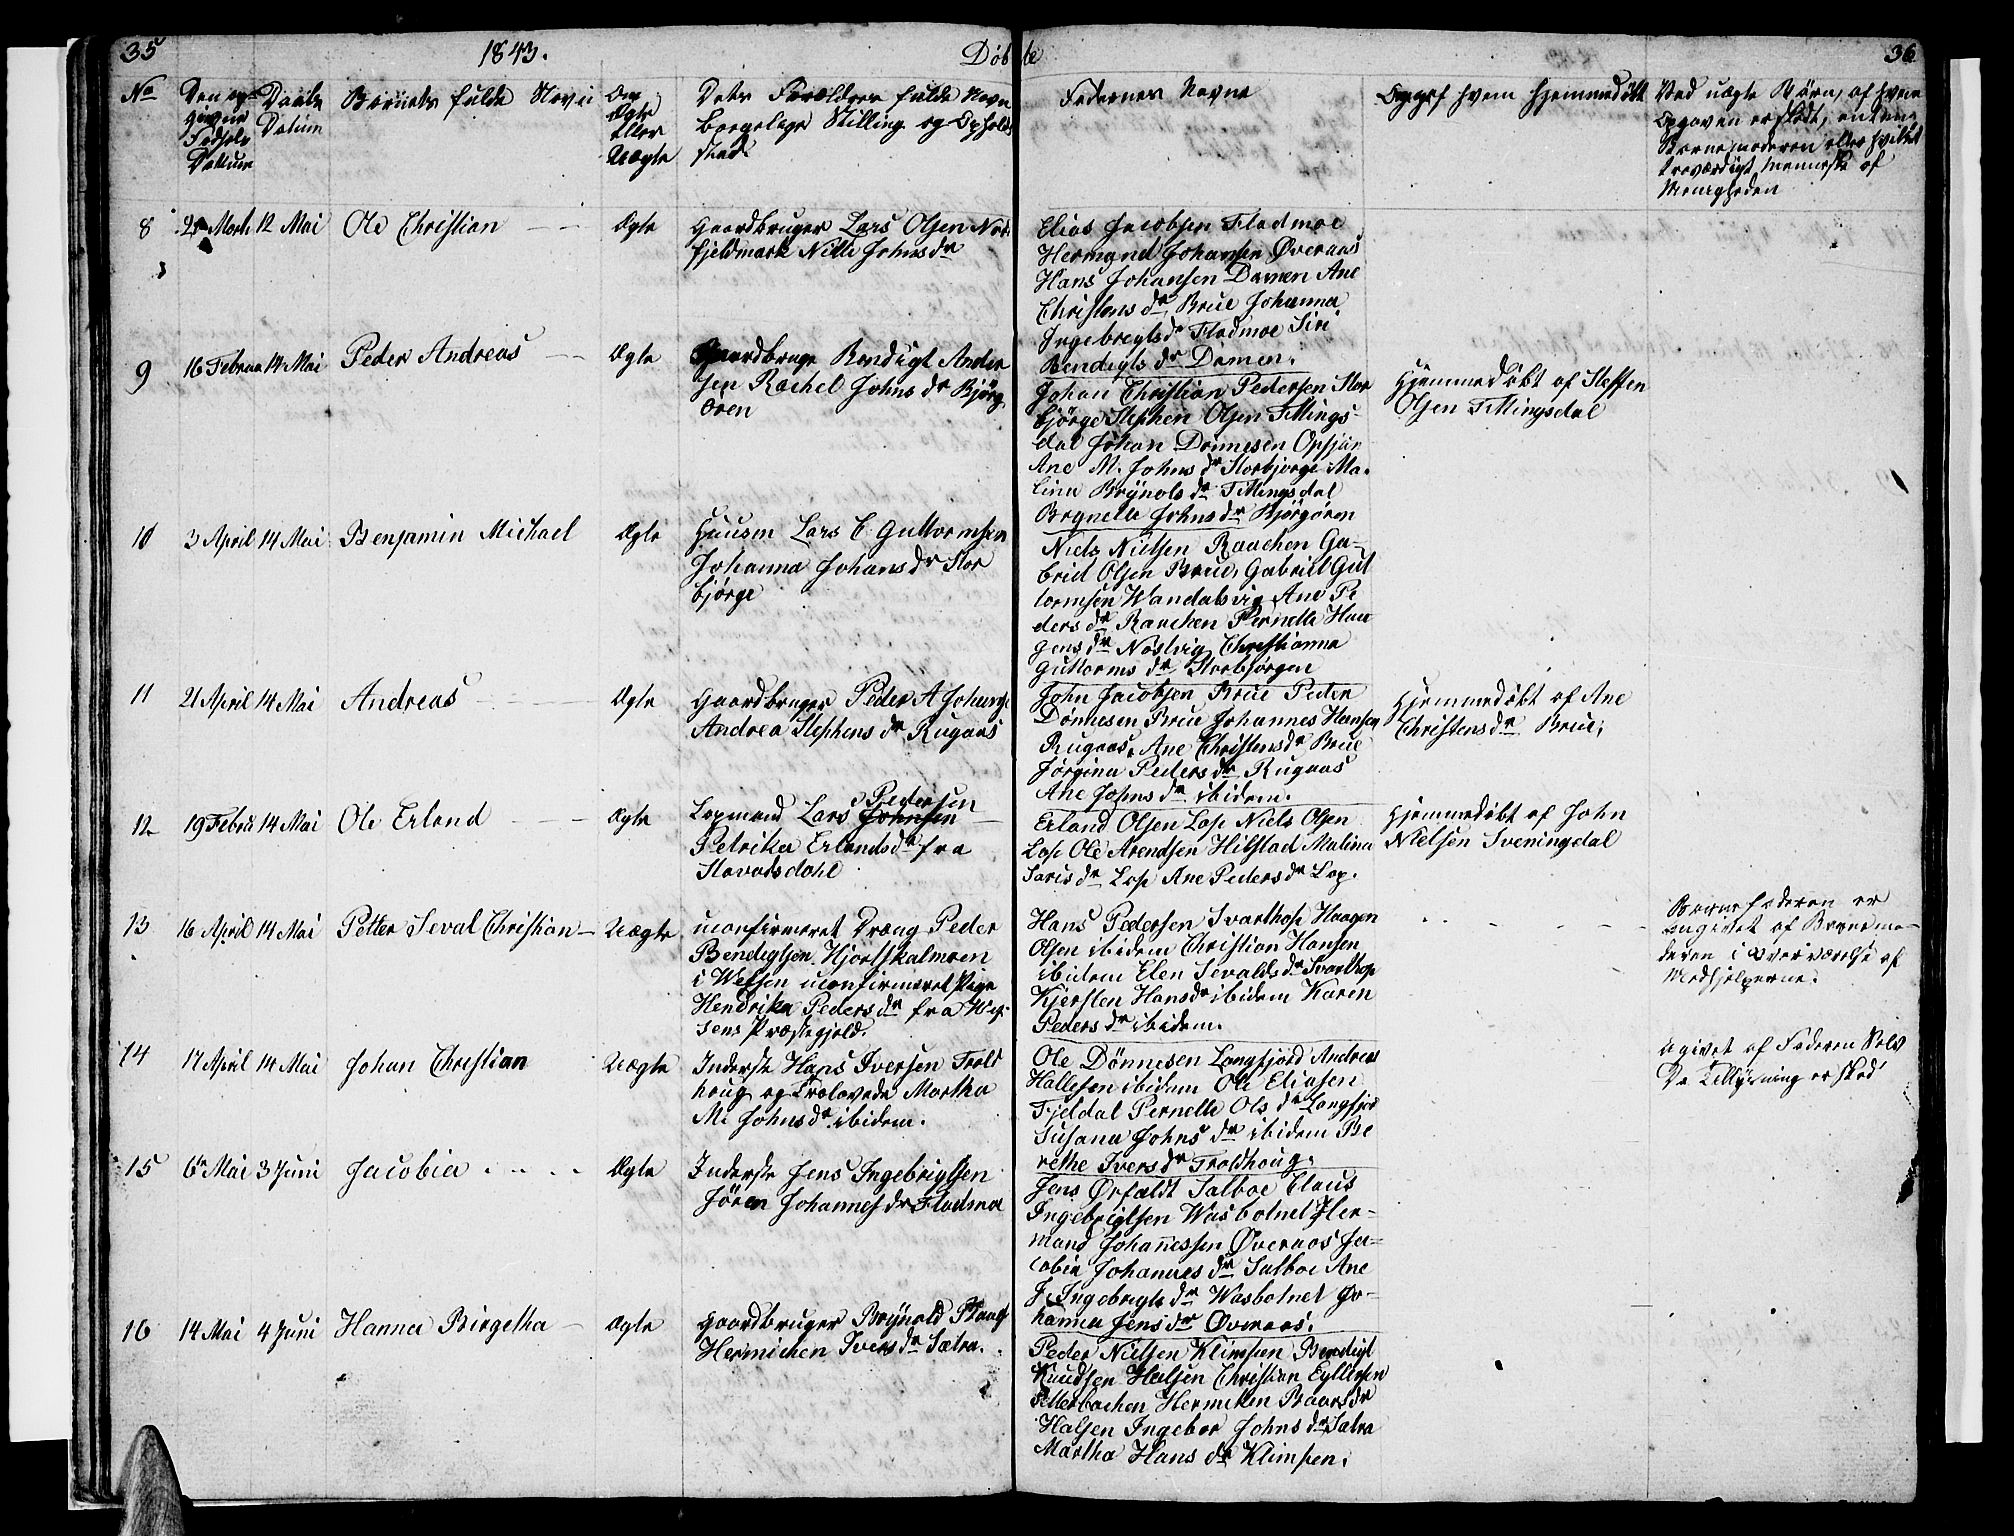 35
1843.
Døbte
36
No
Den op
givne
Fødsels
Dattum
Daabs
Datum
Barnets fulde Navn
Om
Ægte
Eller
Uægte
Dets Forældres fulde Navn
Borgelige Stilling og Ophold
sted.
Faddernes Navne
Opgaf hvem Hjemmedøbt
Ved uægte Børn, af hvem
Opgaven er skedt, enten
Barnemoderen eller hvilket
troværdigt Menneske af
Menigheden
8
12 Mai
Ole Christian
Ægte
Gaardbruger Lars Olsen
Fjeldmark Nille Johnsdr
Elias Jacobsen Fladmoe
Hermand Johansen Øveraas
Hans Johansen Damen Ane
Christensdr Brue Johanna
Ingebregtsdr Fladmoe Siri
Bendigtsdr Damen.
9
16 Februa 14 Mai
Peder Andreas
Ægte
Gaardbruge Bendigt Ander
sen Rachel Johnsdr Bjørg
ören
Johan Christian Pedersen Stor
bjørge Stephen Olsen Fittings
dal Johan Donnesen Opsjøn
Ane M. Johnsdr Storbjorge Ma-
lina Brynolsdr Fittingsdal
Brynelle Johnsdr Bjørgören
Hjemmedøbt af Steffen
Olsen Fittingsdal
10
3 April 14 Mai
Benjamin Michael
Ægte
Huusm Lars C. Guttormsen
Johanna Johansdr Stor
bjørge
Niels Nielsen Raachen Ga-
briel Olsen Brue, Gabriel Gut
tormsen Wandalsvig Ane Pe
dersdr Raachen Pernelle Haa
gensdr Nasvig Christianna
Guttormsdr Storbjørgen
11
21 April 14 Mai
Andreas
Ægte
Gaardbruger Peder A Johans
Andrea Stephensdr Rugaas
John Jacobsen Brue Peder
Dönnesen Brue Johannes Hansen
Rugaas, Ane Christensdr Brue
Jørgina Pedersdr Rugaas
Ane Johnsdr ibidem.
Hjemmedøbt af Ane
Christensdr Brue,
12
19 Febru 14 Mai
Ole Erland
Ægte
Pedersen
Lapmand Lars Johnsen
Petrika Erlandsdr fra
Stavadsdahl
Erland Olsen Lap Niels Olsen
Lap Ole Arendsen Hilstad Malina
Larisdr Lap Ane Pedersdr Lap.
Hjemmedøbt af John
Nielsen Sveningdal
13
16 April 14 Mai
Petter Seval Christian
Uægte
uconfirmeret Dræng Peder
Bendigtsen Hjortskalmoen
i Wefsen uconfirmeret Pige
Hendrika Pedersdr fra Wef-
sens Præstegjeld.
Hans Pedersen Svarthop Haagen
Olsen ibidem Christian Hansen
ibidem Elen Sevaldsdr Svarthop
Kjersten Hansdr ibidem Karen
Pedersdr ibidem.
Barnefaderen er
angivet af Barnemo-
deren i Overværelse af
Medhjelperne.
14
17 April 14 Mai
Johan Christian
Uægte
Inderste Hans Iversen Trold
houg og Trolovede Martha
M. Johnsdr ibidem.
Ole Dönnesen Langfjord Andreas
Hallesen ibidem Ole Eliasen
Fjeldal Pernelle Olsdr Langfjor
Susana Johnsdr ibidem Be
rethe Iversdr Troldhoug.
Agivet af Faderen Selv
Da Tillysning er sked
15
6te Mai 3 Juni
Jacobia
Ægte
Inderste Jens Ingebrigtsen
Jören Johannesdr Fladmoe
Jens Ørfeldt Salboe Claus
Ingebrigtsen Wasbotnet Her-
mand Johannessen Øveraas Ja-
cobia Johannesdr Salboe Ane
J. Ingebregtsdr Wasbotnet Jo-
hanna Jensdr Øveraas.
16
14 Mai 4 Juni
Hanna Birgetha
Ægte
Gaardbruger Brynold
Hermichen Iversdr Sætra.
Peder Nielsen Klimpen Bendigt
Knudsen Halsen Christian Eyllersen
Petterbachen Hermeken Baarsdr
Halsen Ingebor Johnsdr Satra
Martha Hansdr Klimpen.